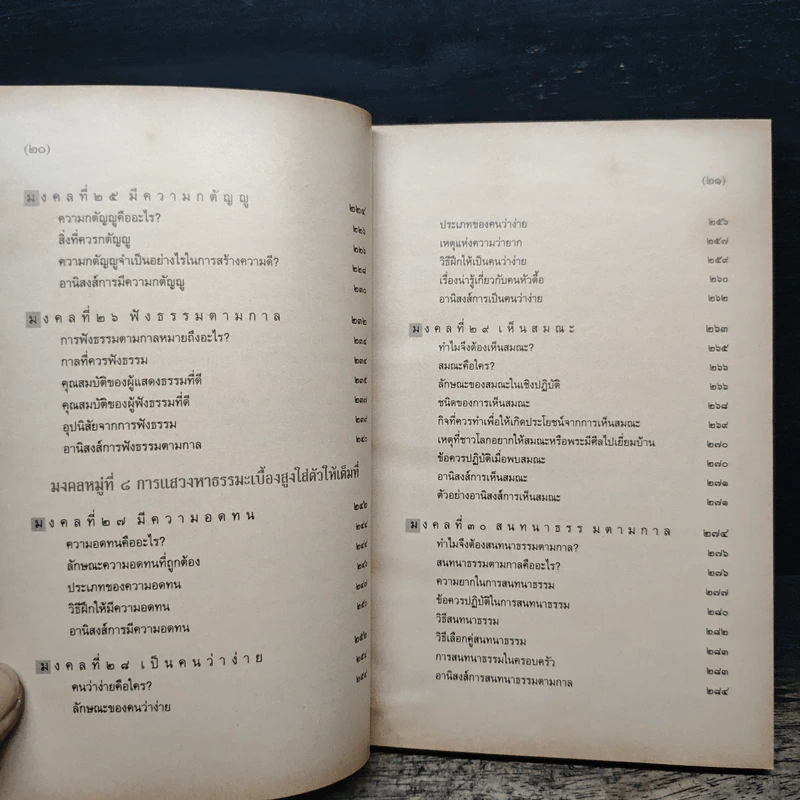 (๒๐)
มงคลที่ ๒๕ มีความกตัญญู ๒๒๔
ความกตัญญูคืออะไร? ๒๒๖
สิ่งที่ควรกตัญญู ๒๒๖
ความกตัญญูจำเป็นอย่างไรในการสร้างความดี? ๒๒๘
อานิสงส์การมีความกตัญญู ๒๓๐
มงคลที่ ๒๖ ฟังธรรมตามกาล ๒๓๒
การฟังธรรมตามกาลหมายถึงอะไร? ๒๓๔
กาลที่ควรฟังธรรม ๒๓๔
คุณสมบัติของผู้แสดงธรรมที่ดี ๒๓๕
คุณสมบัติของผู้ฟังธรรมที่ดี
อุปนิสัยจากการฟังธรรม
อานิสงส์การฟังธรรมตามกาล ๒๔๐
มงคลหมู่ที่ ๘ การแสวงหาธรรมะเบื้องสูงใส่ตัวให้เต็มที่
มงคลที่ ๒๗ มีความอดทน ๒๔๒
ความอดทนคืออะไร? ๒๔๔
ลักษณะความอดทนที่ถูกต้อง ๒๔๔
ประเภทของความอดทน ๒๔๖
วิธีฝึกให้มีความอดทน
อานิสงส์การมีความอดทน ๒๕๐
มงคลที่ ๒๘ เป็นคนว่าง่าย ๒๕๒
คนว่าง่ายคือใคร? ๒๕๔
ลักษณะของคนว่าง่าย ๒๕๔
(๒๑)
ประเภทของคนว่าง่าย ๒๕๖
เหตุแห่งความว่ายาก ๒๕๗
วิธีฝึกให้เป็นคนว่าง่าย ๒๕๙
เรื่องน่ารู้เกี่ยวกับคนหัวดื้อ ๒๖๐
อานิสงส์การเป็นคนว่าง่าย ๒๖๒
มงคลที่ ๒๙ เห็นสมณะ ๒๖๓
ทำไมจึงต้องเห็นสมณะ? ๒๖๕
สมณะคือใคร? ๒๖๖
ลักษณะของสมณะในเชิงปฏิบัติ ๒๖๖
ชนิดของการเห็นสมณะ ๒๖๘
กิจที่ควรทำเพื่อให้เกิดประโยชน์จากการเห็นสมณะ ๒๖๙
เหตุที่ชาวโลกอยากให้สมณะหรือพระมีศีลไปเยี่ยมบ้าน ๒๗๐
ข้อควรปฏิบัติเมื่อพบสมณะ ๒๗๐
อานิสงส์การเห็นสมณะ ๒๗๑
ตัวอย่างอานิสงส์การเห็นสมณะ ๒๗๑
มงคลที่ ๓๐ สนทนาธรรมตามกาล ๒๗๔
ทำไมจึงต้องสนทนาธรรมตามกาล? ๒๗๖
สนทนาธรรมตามกาลคืออะไร? ๒๗๖
ความยากในการสนทนาธรรม ๒๗๗
ข้อควรปฏิบัติในการสนทนาธรรม ๒๘๐
วิธีสนทนาธรรม ๒๘๒
วิธีเลือกคู่สนทนาธรรม ๒๘๓
การสนทนาธรรมในครอบครัว ๒๘๓
อานิสงส์การสนทนาธรรมตามกาล ๒๘๔